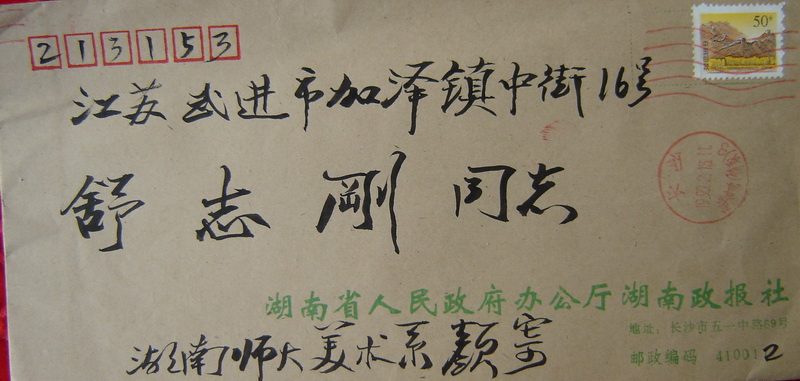 213153
50分
江苏武进市加泽镇中街16号
舒志刚同志
湖南省人民政府办公厅湖南政报社
地址：长沙市五一中路69号
湖南师大美术系颜
邮政编码 410012